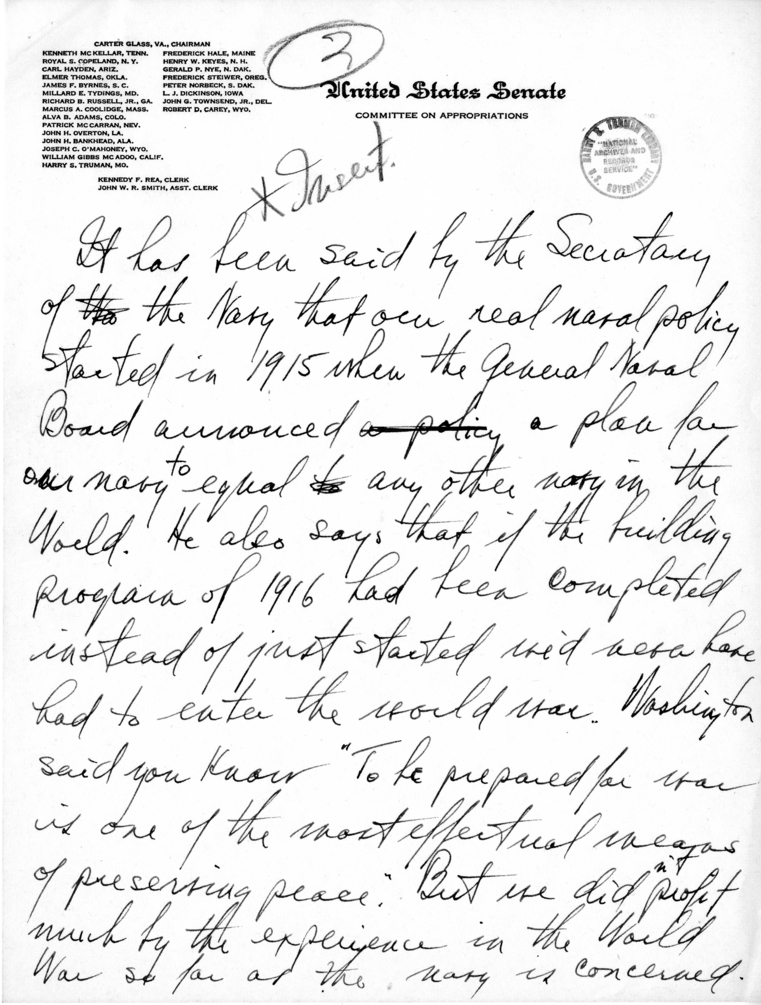 2
CARTER GLASS, VA., CHAIRMAN
KENNETH MCKELLAR, TENN.
ROYAL S. COPELAND, N. Y.
CARL HAYDEN, ARIZ.
ELMER THOMAS, OKLA.
JAMES F. BYRNES, S. C.
MILLARD E. TYDINGS, MD.
RICHARD B. RUSSELL, JR., GA.
MARCUS A. COOLIDGE, MASS.
ALVA B. ADAMS, COLO.
PATRICK MCCARRAN, NEV.
JOHN H. OVERTON, LA.
JOHN H. BANKHEAD, ALA.
JOSEPH C. O'MAHONEY, WYO.
WILLIAM GIBBS MCADOO, CALIF.
HARRY S. TRUMAN, MO.
FREDERICK HALE, MAINE
HENRY W. KEYES, N. H.
GERALD P. NYE, N. DAK.
FREDERICK STEIWER, OREG.
PETER NORBECK, S. DAK.
L. J. DICKINSON, IOWA
JOHN G. TOWNSEND, JR., DEL.
ROBERT D. CAREY, WYO.
KENNEDY F. REA, CLERK
JOHN W. R. SMITH, ASST. CLERK
United States Senate
COMMITTEE ON APPROPRIATIONS
HARRY S. TRUMAN LIBRARY
"NATIONAL
ARCHIVES AND
RECORDS
SERVICE"
U.S. GOVERNMENT
* Insert.
It has been said by the Secratary
of the the Navy that our real naval policy
started in 1915 when the General Naval
Board announced a policy a plan for
our navy to equal to any other navy in the
World. He also says that if the building
program of 1916 had been completed
instead of just started we'd never have
had to enter the world war. Washington
said you know "To be prepared for war
is one of the most effectual means
of preserving peace." But we did n't profit
much by the experience in the World
War so far as the navy is concerned.